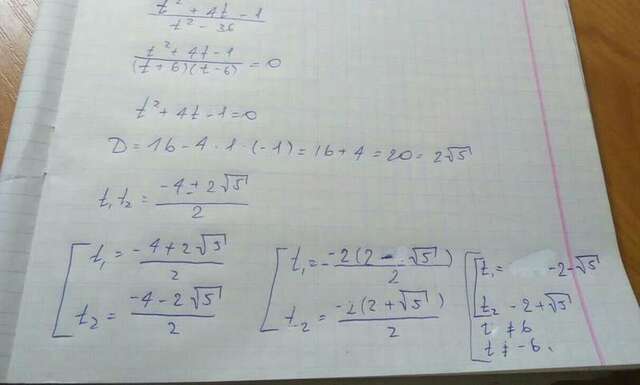 t² + 4t - 1 / t² - 36
t² + 4t - 1 / (t + 6)(t - 6) = 0
t² + 4t - 1 = 0
D = 16 - 4 · 1 · (-1) = 16 + 4 = 20 = 2√5
t₁ t₂ = -4 ± 2√5 / 2
[ t₁ = -4 + 2√5 / 2
t₂ = -4 - 2√5 / 2
[ t₁ = -2(2 - √5) / 2
t₂ = -2(2 + √5) / 2
[ t₁ = -2 - √5
t₂ -2 + √5
t ≠ 6
t ≠ -6.